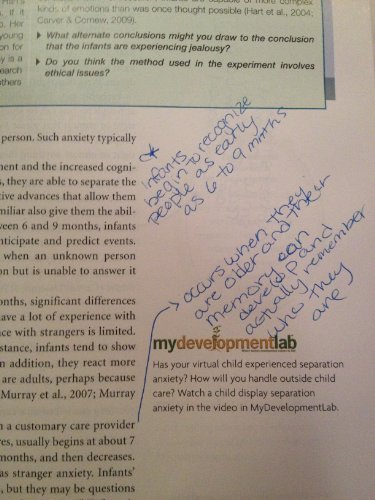 kinds of emotions than was once thought possible (Hart et al., 2004;
Carver & Cornew, 2009).
▶ What alternate conclusions might you draw to the conclusion
that the infants are experiencing jealousy?
▶ Do you think the method used in the experiment involves
ethical issues?
. If it
. Her
young
on for
y is a
earch
thers
person. Such anxiety typically
ment and the increased cogni-
s, they are able to separate the
tive advances that allow them
miliar also give them the abil-
ween 6 and 9 months, infants
nticipate and predict events.
when an unknown person
on but is unable to answer it
onths, significant differences
ave a lot of experience with
ce with strangers is limited.
stance, infants tend to show
n addition, they react more
are adults, perhaps because
Murray et al., 2007; Murray
n a customary care provider
res, usually begins at about 7
months, and then decreases.
as stranger anxiety. Infants'
, but they may be questions
* infants recognize
begin to
people as early
as 6 to 9 months
occurs when they
are older and their
memory can
develop and
actually remember
who they
are
mydevelopmentlab
Has your virtual child experienced separation
anxiety? How will you handle outside child
care? Watch a child display separation
anxiety in the video in MyDevelopmentLab.